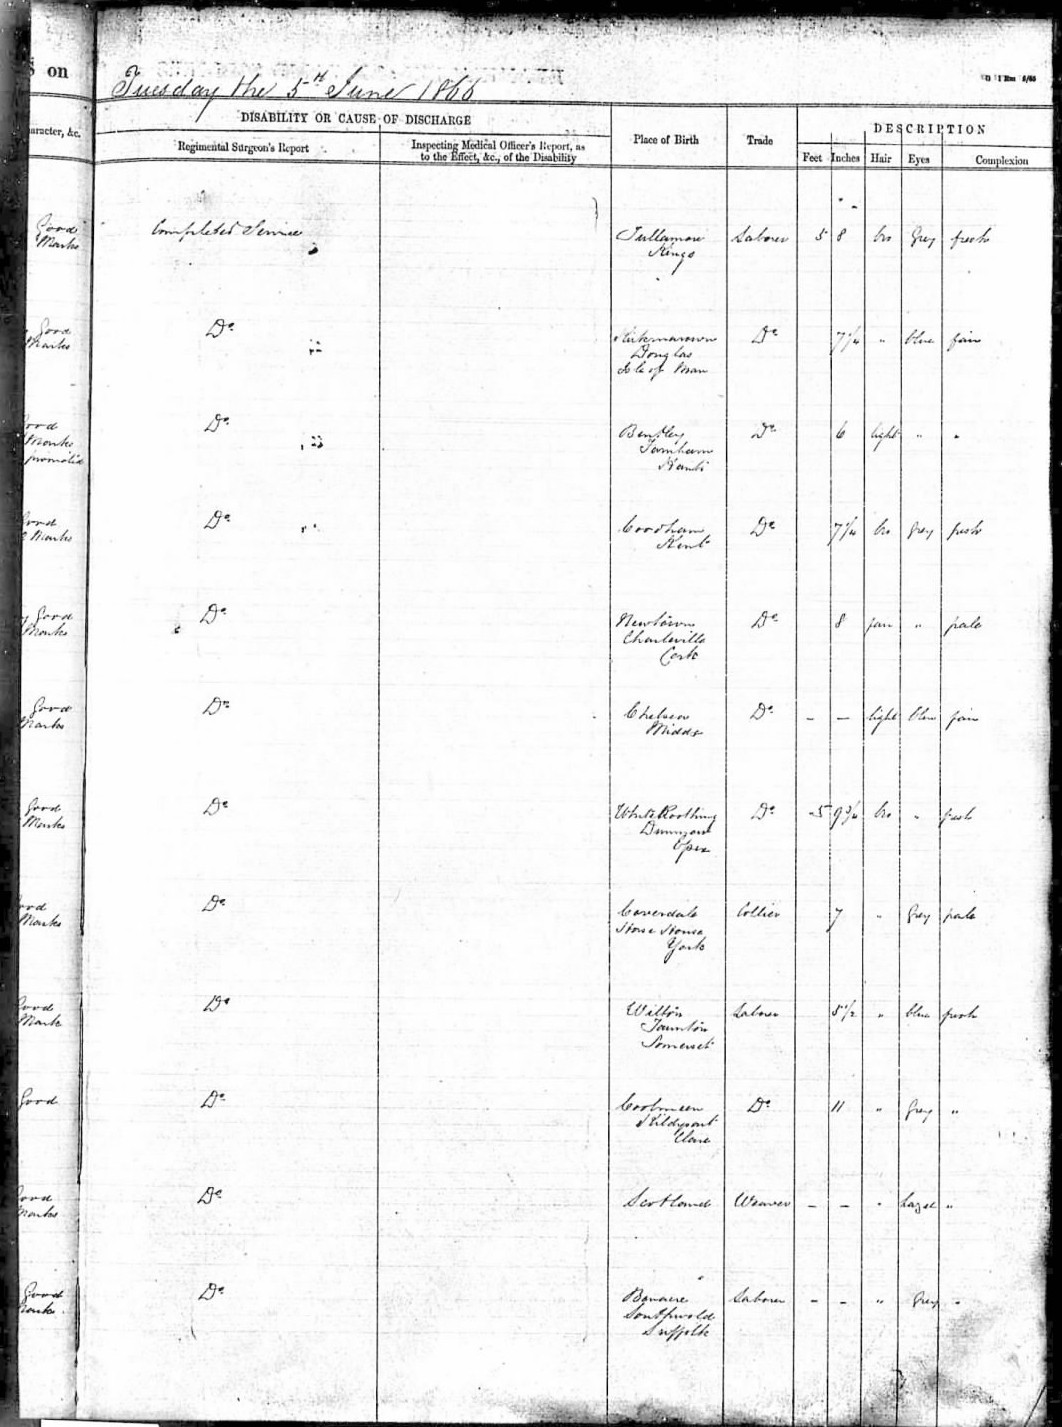 S on
Tuesday the 5th June 1866
aracter, &c.
DISABILITY OR CAUSE OF DISCHARGE
Regimental Surgeon's Report
Inspecting Medical Officer's Report, as
to the Effect, &c., of the Disability
Place of Birth
Trade
DESCRIPTION
Feet Inches Hair Eyes Complexion
Good
Marks
Completed Service
Tullamore
Kings
Laborer 5 8 bro Grey fresh
Good
Marks
Do
Douglas
Isle of Man
Do 7 1/4 " blue fair
ood
Marks
promoted
Do
Bentley
Farnham
Hants
Do 6 light " "
ood
Marks
Do
Kent
Do 7 1/4 bro grey fresh
Good
Marks
Do
Newtown
Charleville
Cork
Do 8 " pale
Good
Marks
Do
Chelsea
Middx
Do - - light blue fair
Good
Marks
Do
White Roothing
Dunmow
Essex
Do 5 9 3/4 bro " fresh
ood
Marks
Do
Coverdale
Horse House
York
Collier 7 " Grey pale
Good
Mark
Do
Wilton
Taunton
Somerset
Laborer 5 1/2 " blue fresh
Good
Do
Coolmeen
Kildysart
Clare
Do 11 " grey "
ood
Marks
Do
Scotland
Weaver - - " hazel "
Good
Marks
Do
Southwold
Suffolk
Laborer - - " Grey "